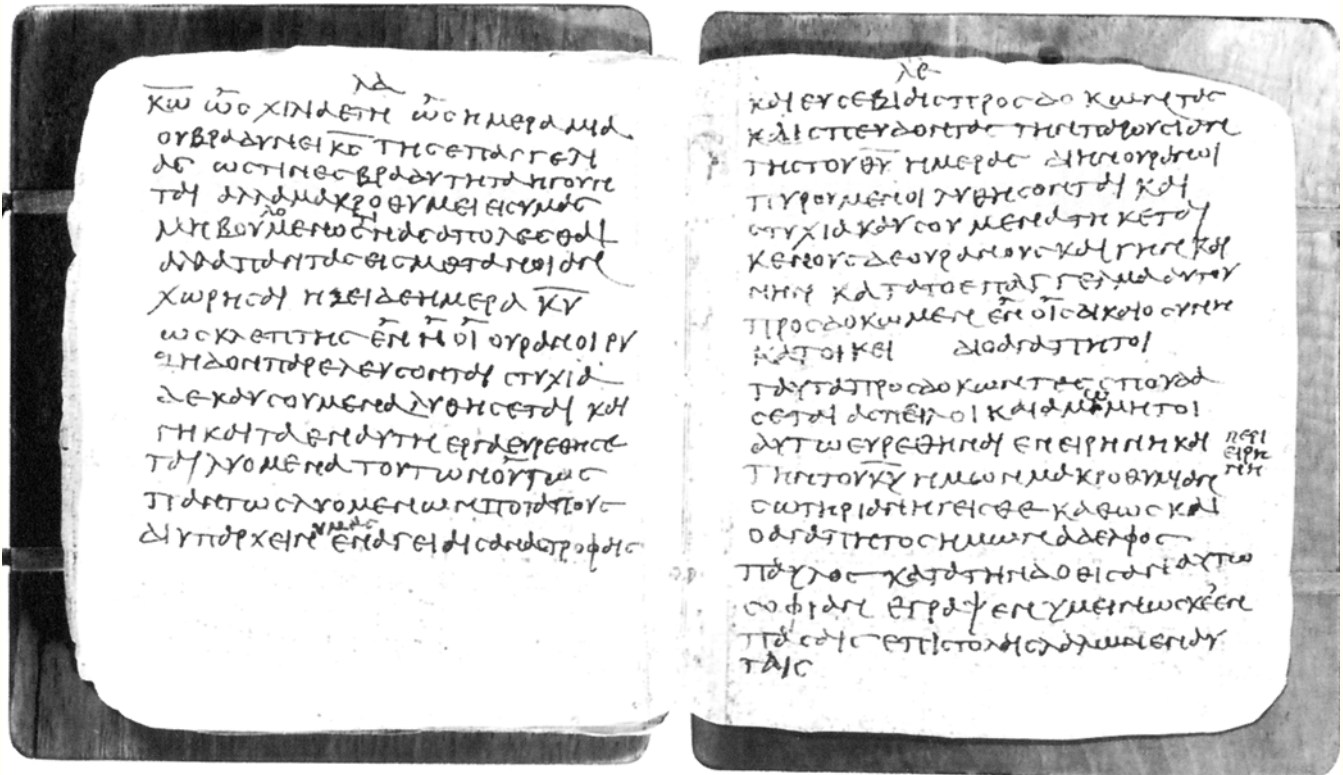 λδ
κ̅ω̅ ὡς χιλια ετη ὡς ημερα μια
ου βραδυνει κ̅ς̅ της επαγγελι
ας ως τινες βραδυτητα ηγουν
ται αλλα μακροθυμει εις υμας
μη βουλομενος τινας απολεσθαι
αλλα παντας εις μετανοιαν
χωρησαι ηξει δε ημερα κ̅υ̅
ως κλεπτης ἐν ἡ οἱ ουρανοι ρυ
ζηδον παρελευσονται στυχια
δε καυσουμενα λυθησεται και
γη και τα εν αυτη εργα ευρεθησε
ται λυομενα τουτων ουτως
παντως λυομενων ποταπους
δι υπαρχειν υμας εν αγειαις αναστροφαις
λε
και ευσεβιαις προσδοκωντας
και σπευδοντας την παρουσιαν
της του θ̅υ̅ ημερας δι ην ουρανοι
πυρουμενοι λυθησονται και
στυχια καυσουμενα τηκεται
κενους δε ουρανους και γην και
νην κατα το επαγγελμα αυτου
προσδοκωμεν ἐν οἱς δικαιοσυνη
κατοικει διο αγαπητοι
ταυτα προσδοκωντες σπουδα
σεται ασπειλοι και αμωμητοι
αυτω ευρεθηναι εν ειρηνη και
περι
ειρη
νη
την του κ̅υ̅ ημων μακροθυμιαν
σωτηριαν ηγεισθε καθως και
ο αγαπητος ημων αδελφος
παυλος κατα την δοθισαν αυτω
σοφιαν εγραψεν υμειν ως κε εν
πασαις επιστολαις λαλων εν αυ
ταις